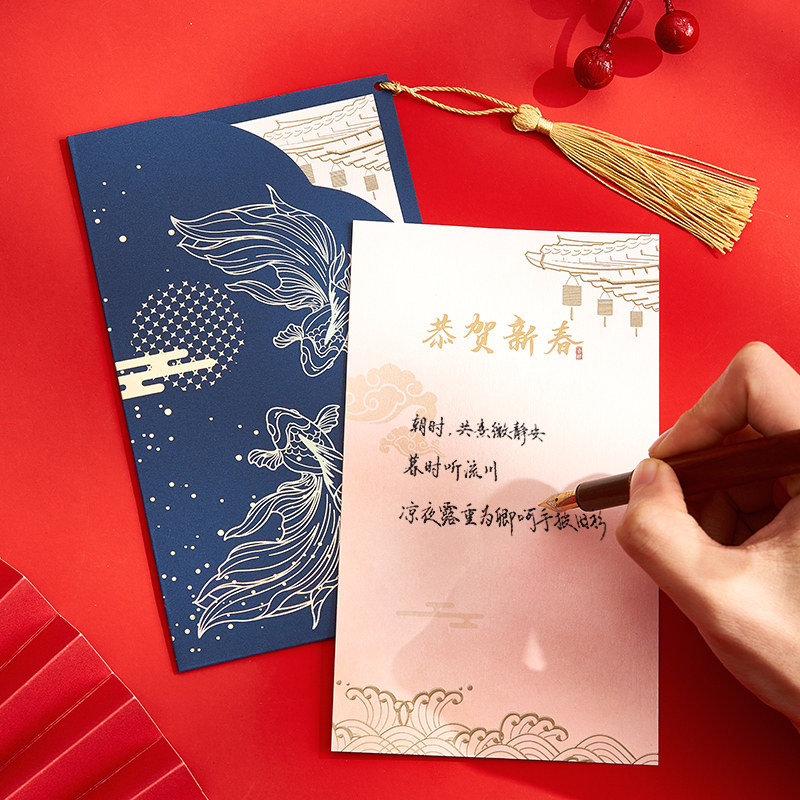 恭贺新春
朝时,共烹微静安
暮时听流川
凉夜露重为卿呵手披旧衫